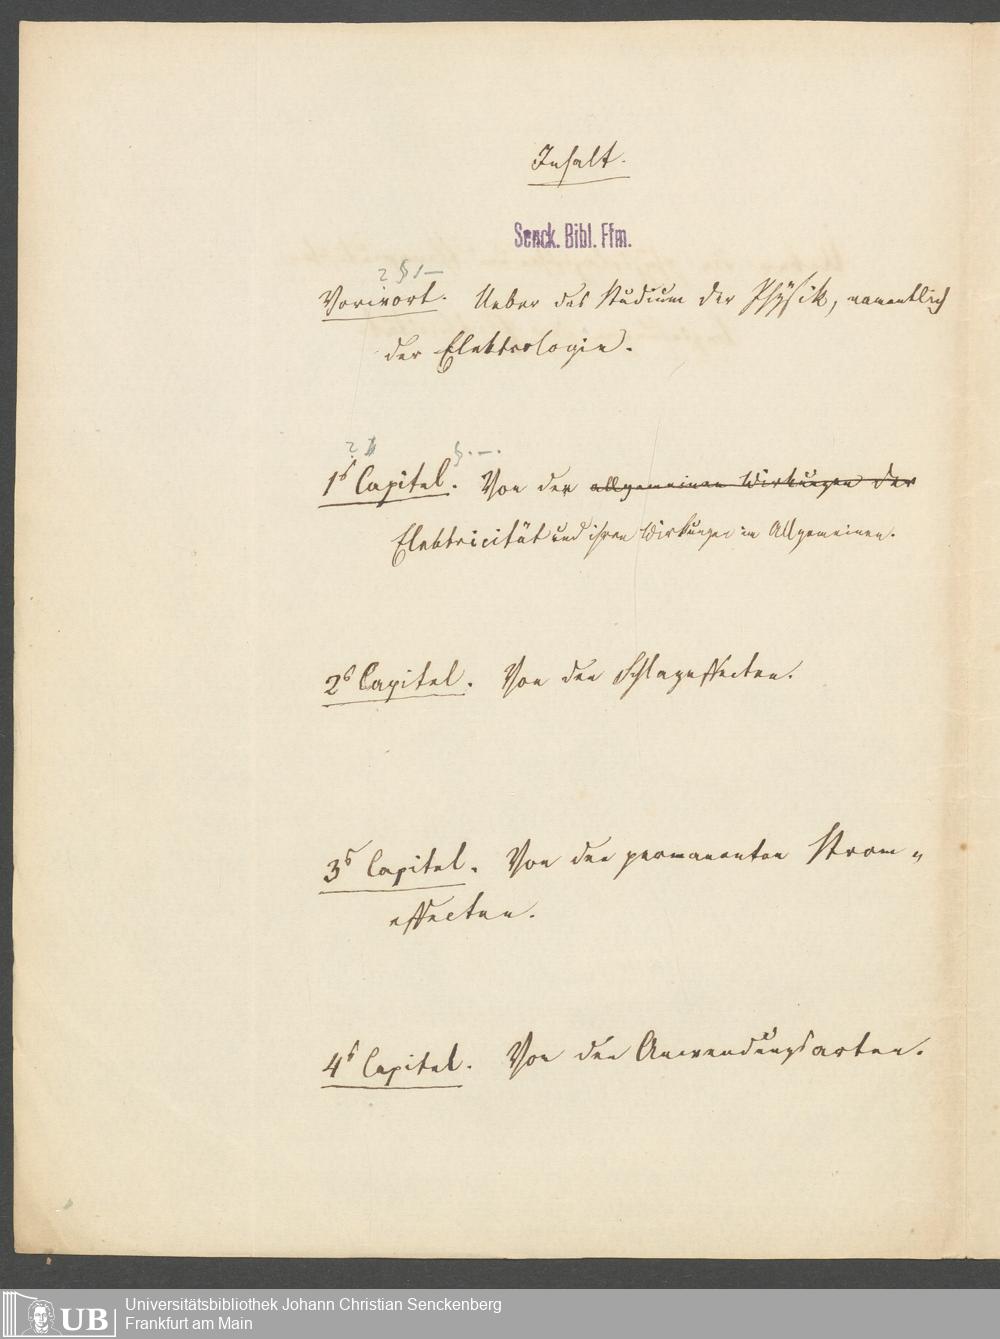 Inhalt.
Senck. Bibl. Ffm.
Vorwort. Ueber das Studium der Physik, namentlich
der Elektrologie.
1s Capitel. Von der allgemeinen Wirkungen der
Elektricität und ihren Wirkungen im Allgemeinen.
2s Capitel. Von den Schlageffecten.
3s Capitel. Von den permanenten Strom„
effecten.
4s Capitel. Von den Anwendungsarten.
UB
Universitätsbibliothek Johann Christian Senckenberg
Frankfurt am Main